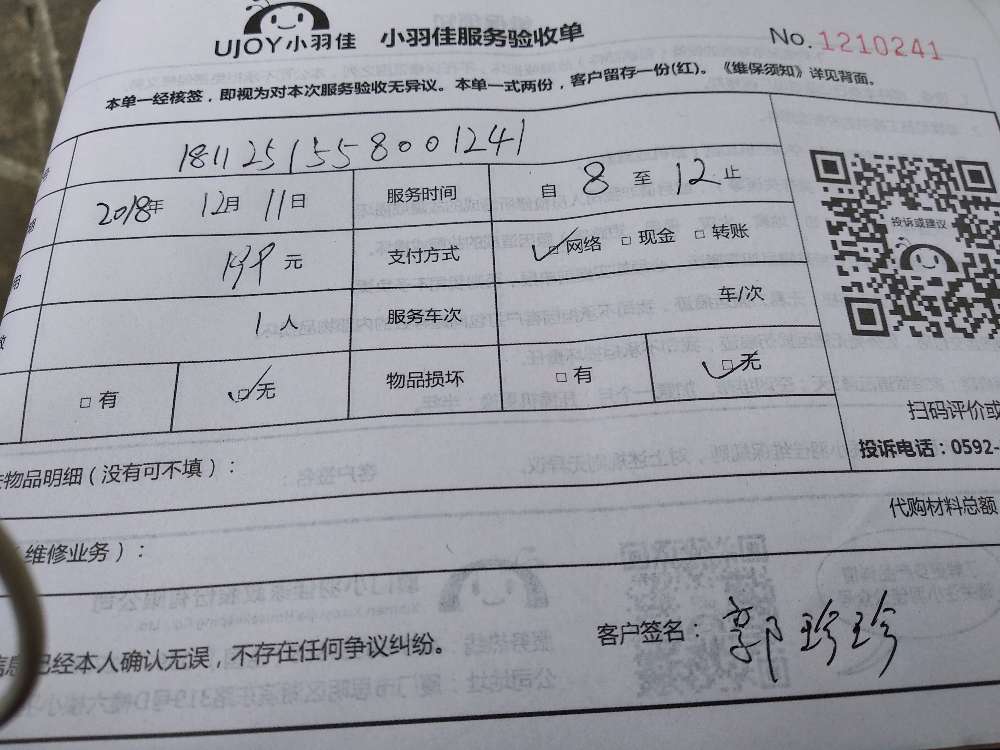 UJOY小羽佳 小羽佳服务验收单 No.1210241
本单一经核签，即视为对本次服务验收无异议。本单一式两份，客户留存一份(红)。《维保须知》详见背面。
1811251558001241
2018年 12月 11日 服务时间 自 8 至 12 止
元 支付方式 网络 现金 转账
投诉或建议
1人 服务车次 车/次
有 无 物品损坏 有 无
扫码评价或
投诉电话：0592-
物品明细（没有可不填）：
代购材料总额
维修业务）：
信息已经本人确认无误，不存在任何争议纠纷。 客户签名：郭珍珍